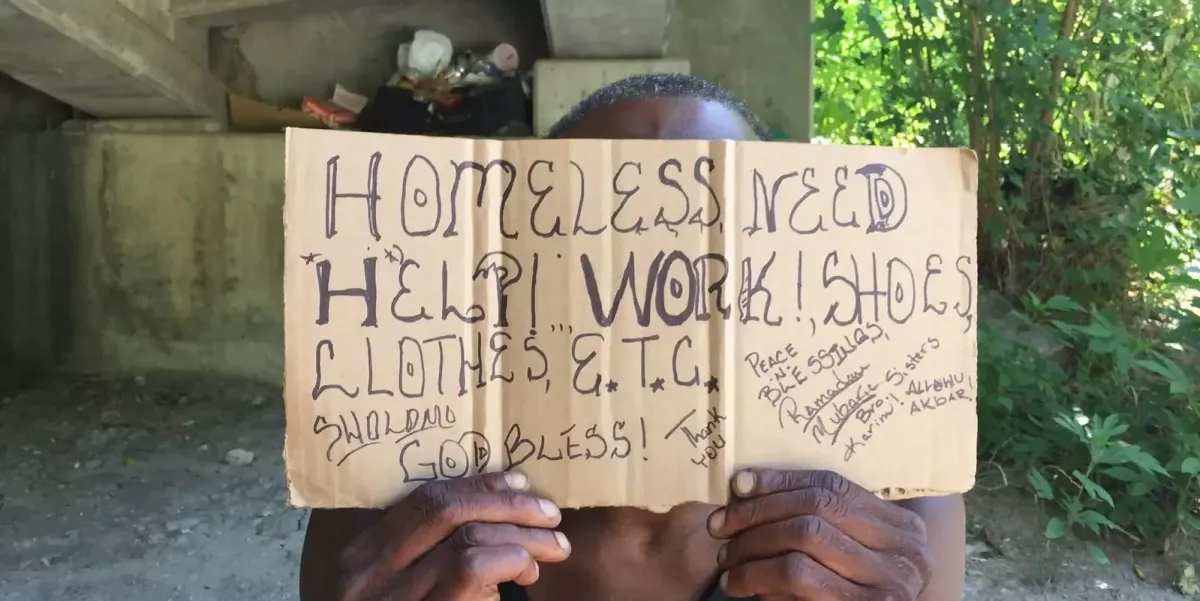 HOMELESS, NEED
*HELP! WORK!, SHOES,
CLOTHES, E.T.C.
GOD BLESS!
Thank
YOU
PEACE
-N-
BLESSINGS,
Ramadan
Mubaric Sisters
Bro.! ALLAHU
Karim! AKBAR!